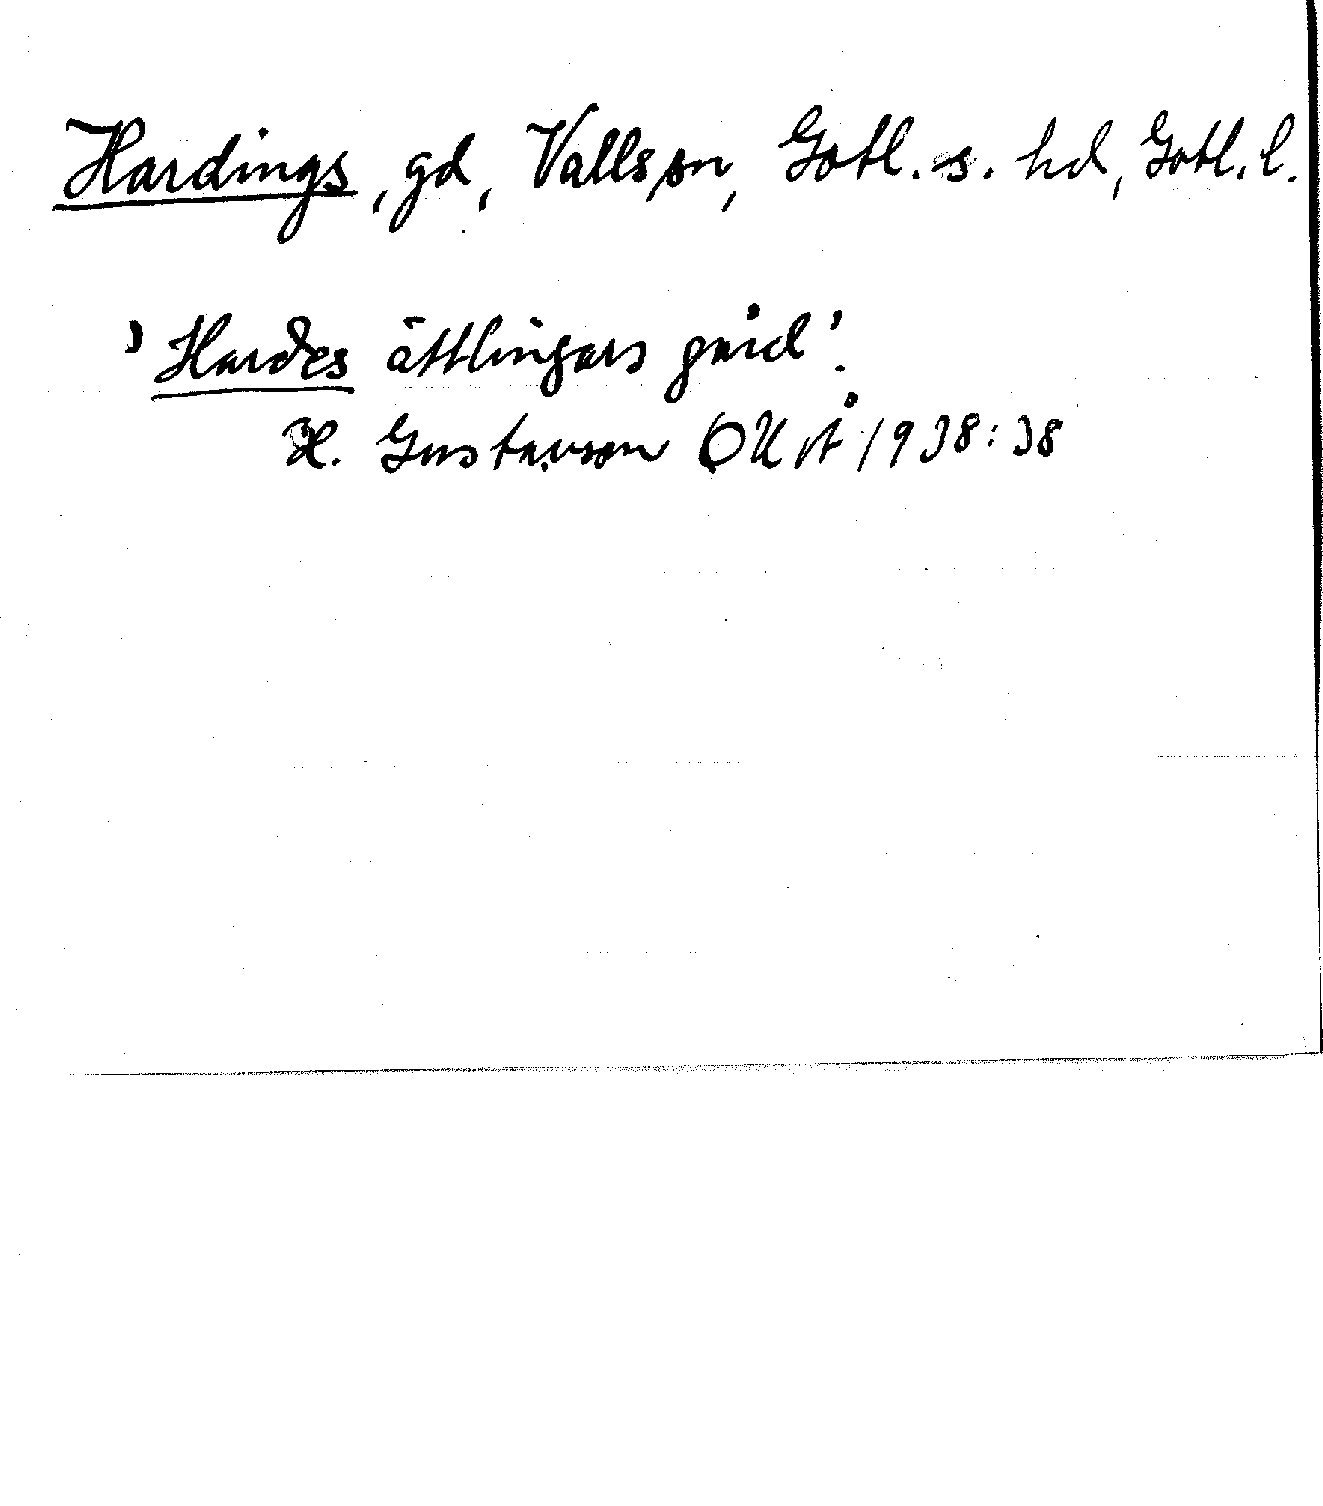 Hardings, gd, Valls sn, Gotl. s. hd, Gotl. l.
'Hardes ättlingars gård'.
H. Gustavson OUÅ 1938:38